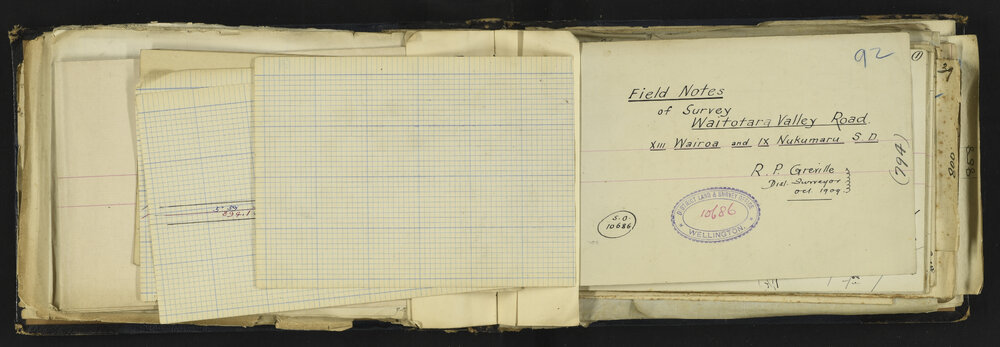 5.50
594.1
92
Field Notes
of Survey
Waitotara Valley Road
XIII Wairoa and IX Nukumaru S.D.
R. P. Greville
Dist. Surveyor
Oct 1909.
S.O.
10686
DISTRICT LAND & SURVEY OFFICE
10686
WELLINGTON.
(794)
1
858